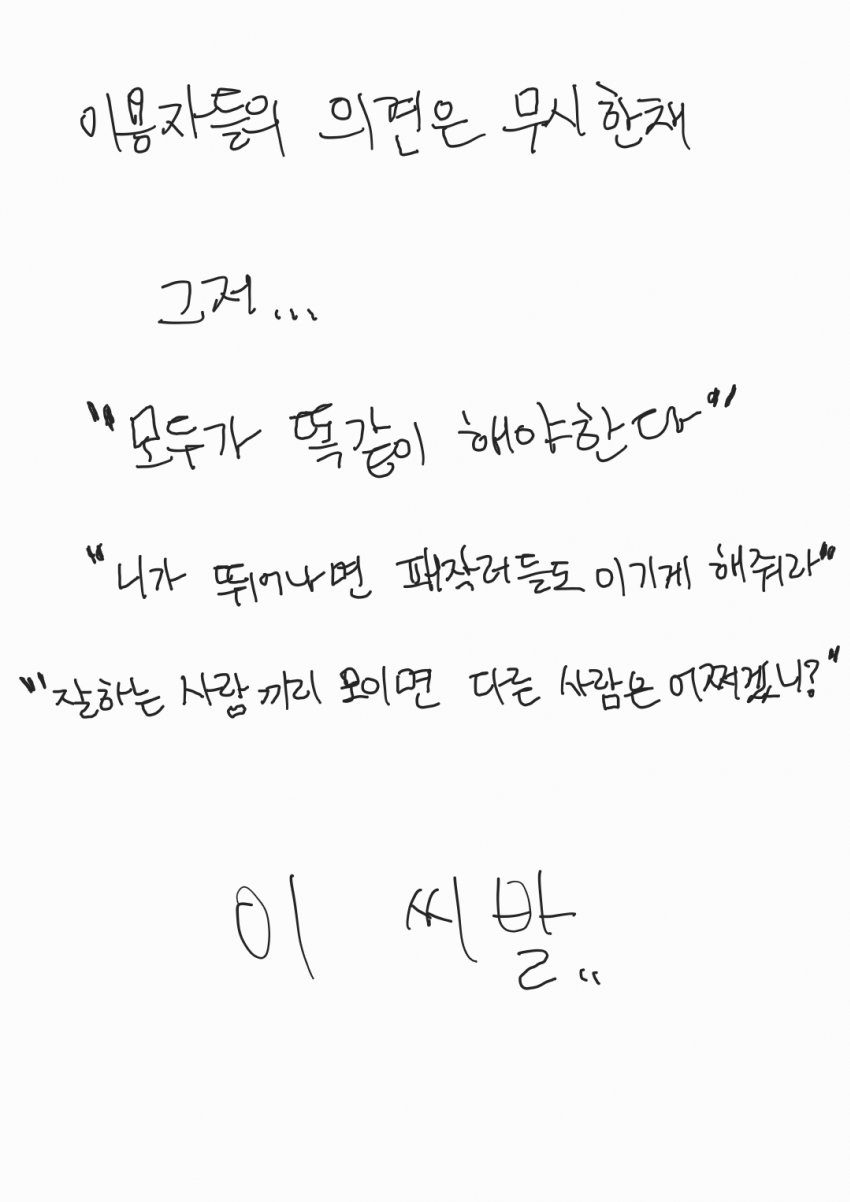 이용자들의 의견은 무시한채
그저...
"모두가 똑같이 해야한다"
"니가 뛰어나면 패작러들도 이기게 해줘라"
"잘하는 사람끼리 모이면 다른 사람은 어쩌겠니?"
이 씨발..